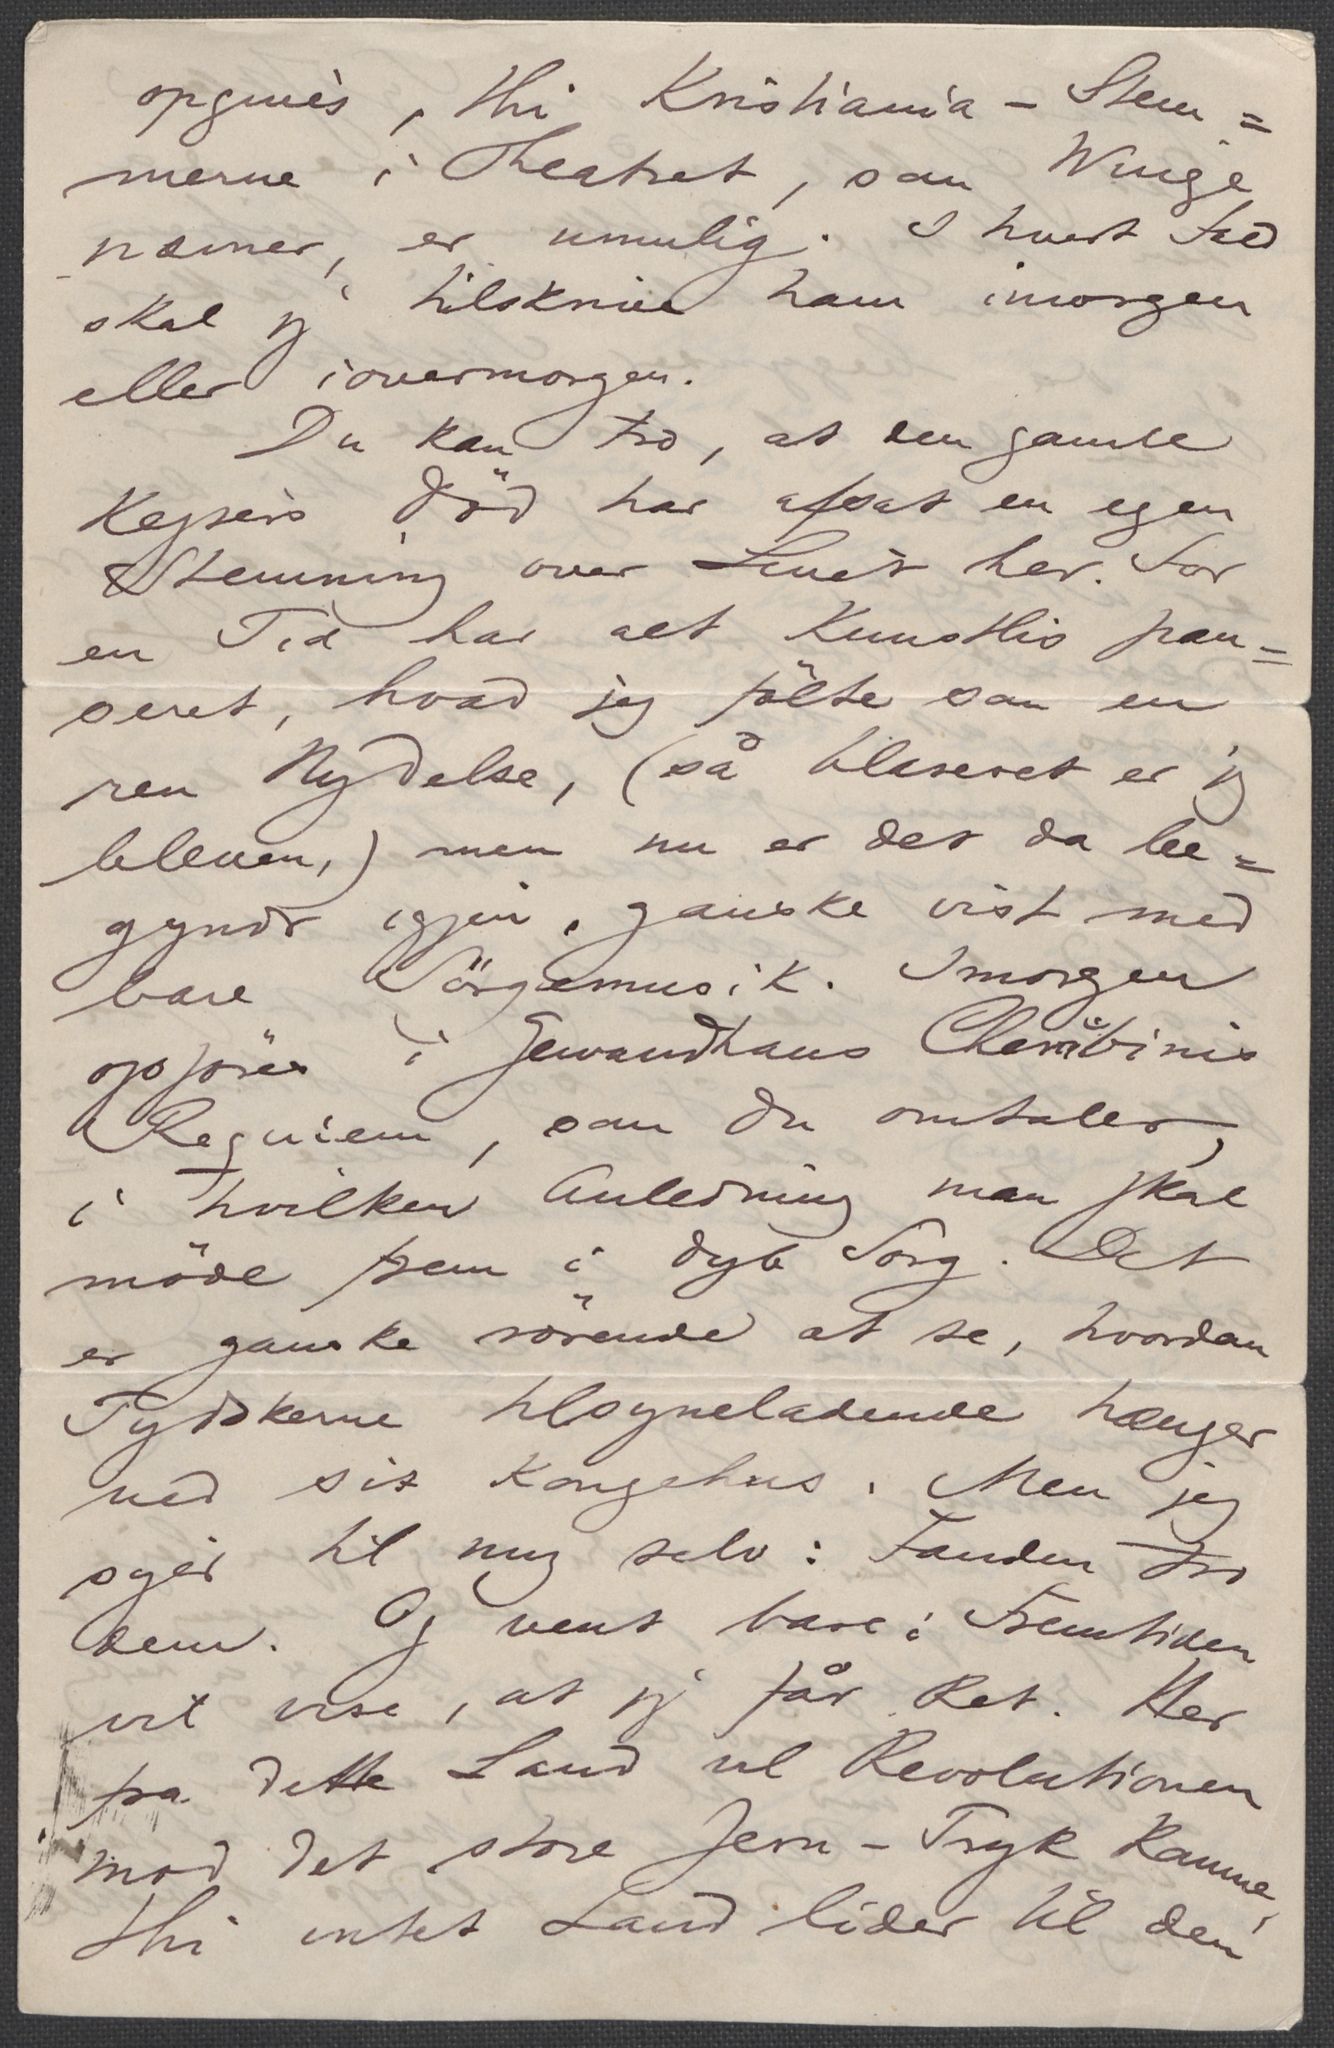 opgives, thi Kristiania-Stem=
merne i Theatret, som Winge
nævner, er umulig. I hvert Fald
skal jeg tilskrive ham imorgen
eller iovermorgen.
Du kan tro, at den gamle
Kejsers Död har afsat en egen
Stemning over Livet her. For
en Tid har alt Kunstliv pau=
seret, hvad jeg fölte som en
ren Nydelse, (så blaseret er jeg
bleven,) men nu er det da be=
gyndt igjen, ganske vist med
bare Sörgemusik. Imorgen
opföres i Gewandhaus Cherubinis
Requiem, som du omtaler,
i hvilken Anledning man skal
möde frem i dyb Sorg. Det
er ganske rörende at se, hvordan
Tydskerne tilsyneladende hænger
ved sit Kongehus. Men jeg
siger til mig selv: Fanden tro
dem. Og vent bare: Fremtiden
vil vise, at jeg får Ret. Her
fra dette Land vil Revolutionen
mod det store Jern-Tryk komme,
thi intet Land lider til den